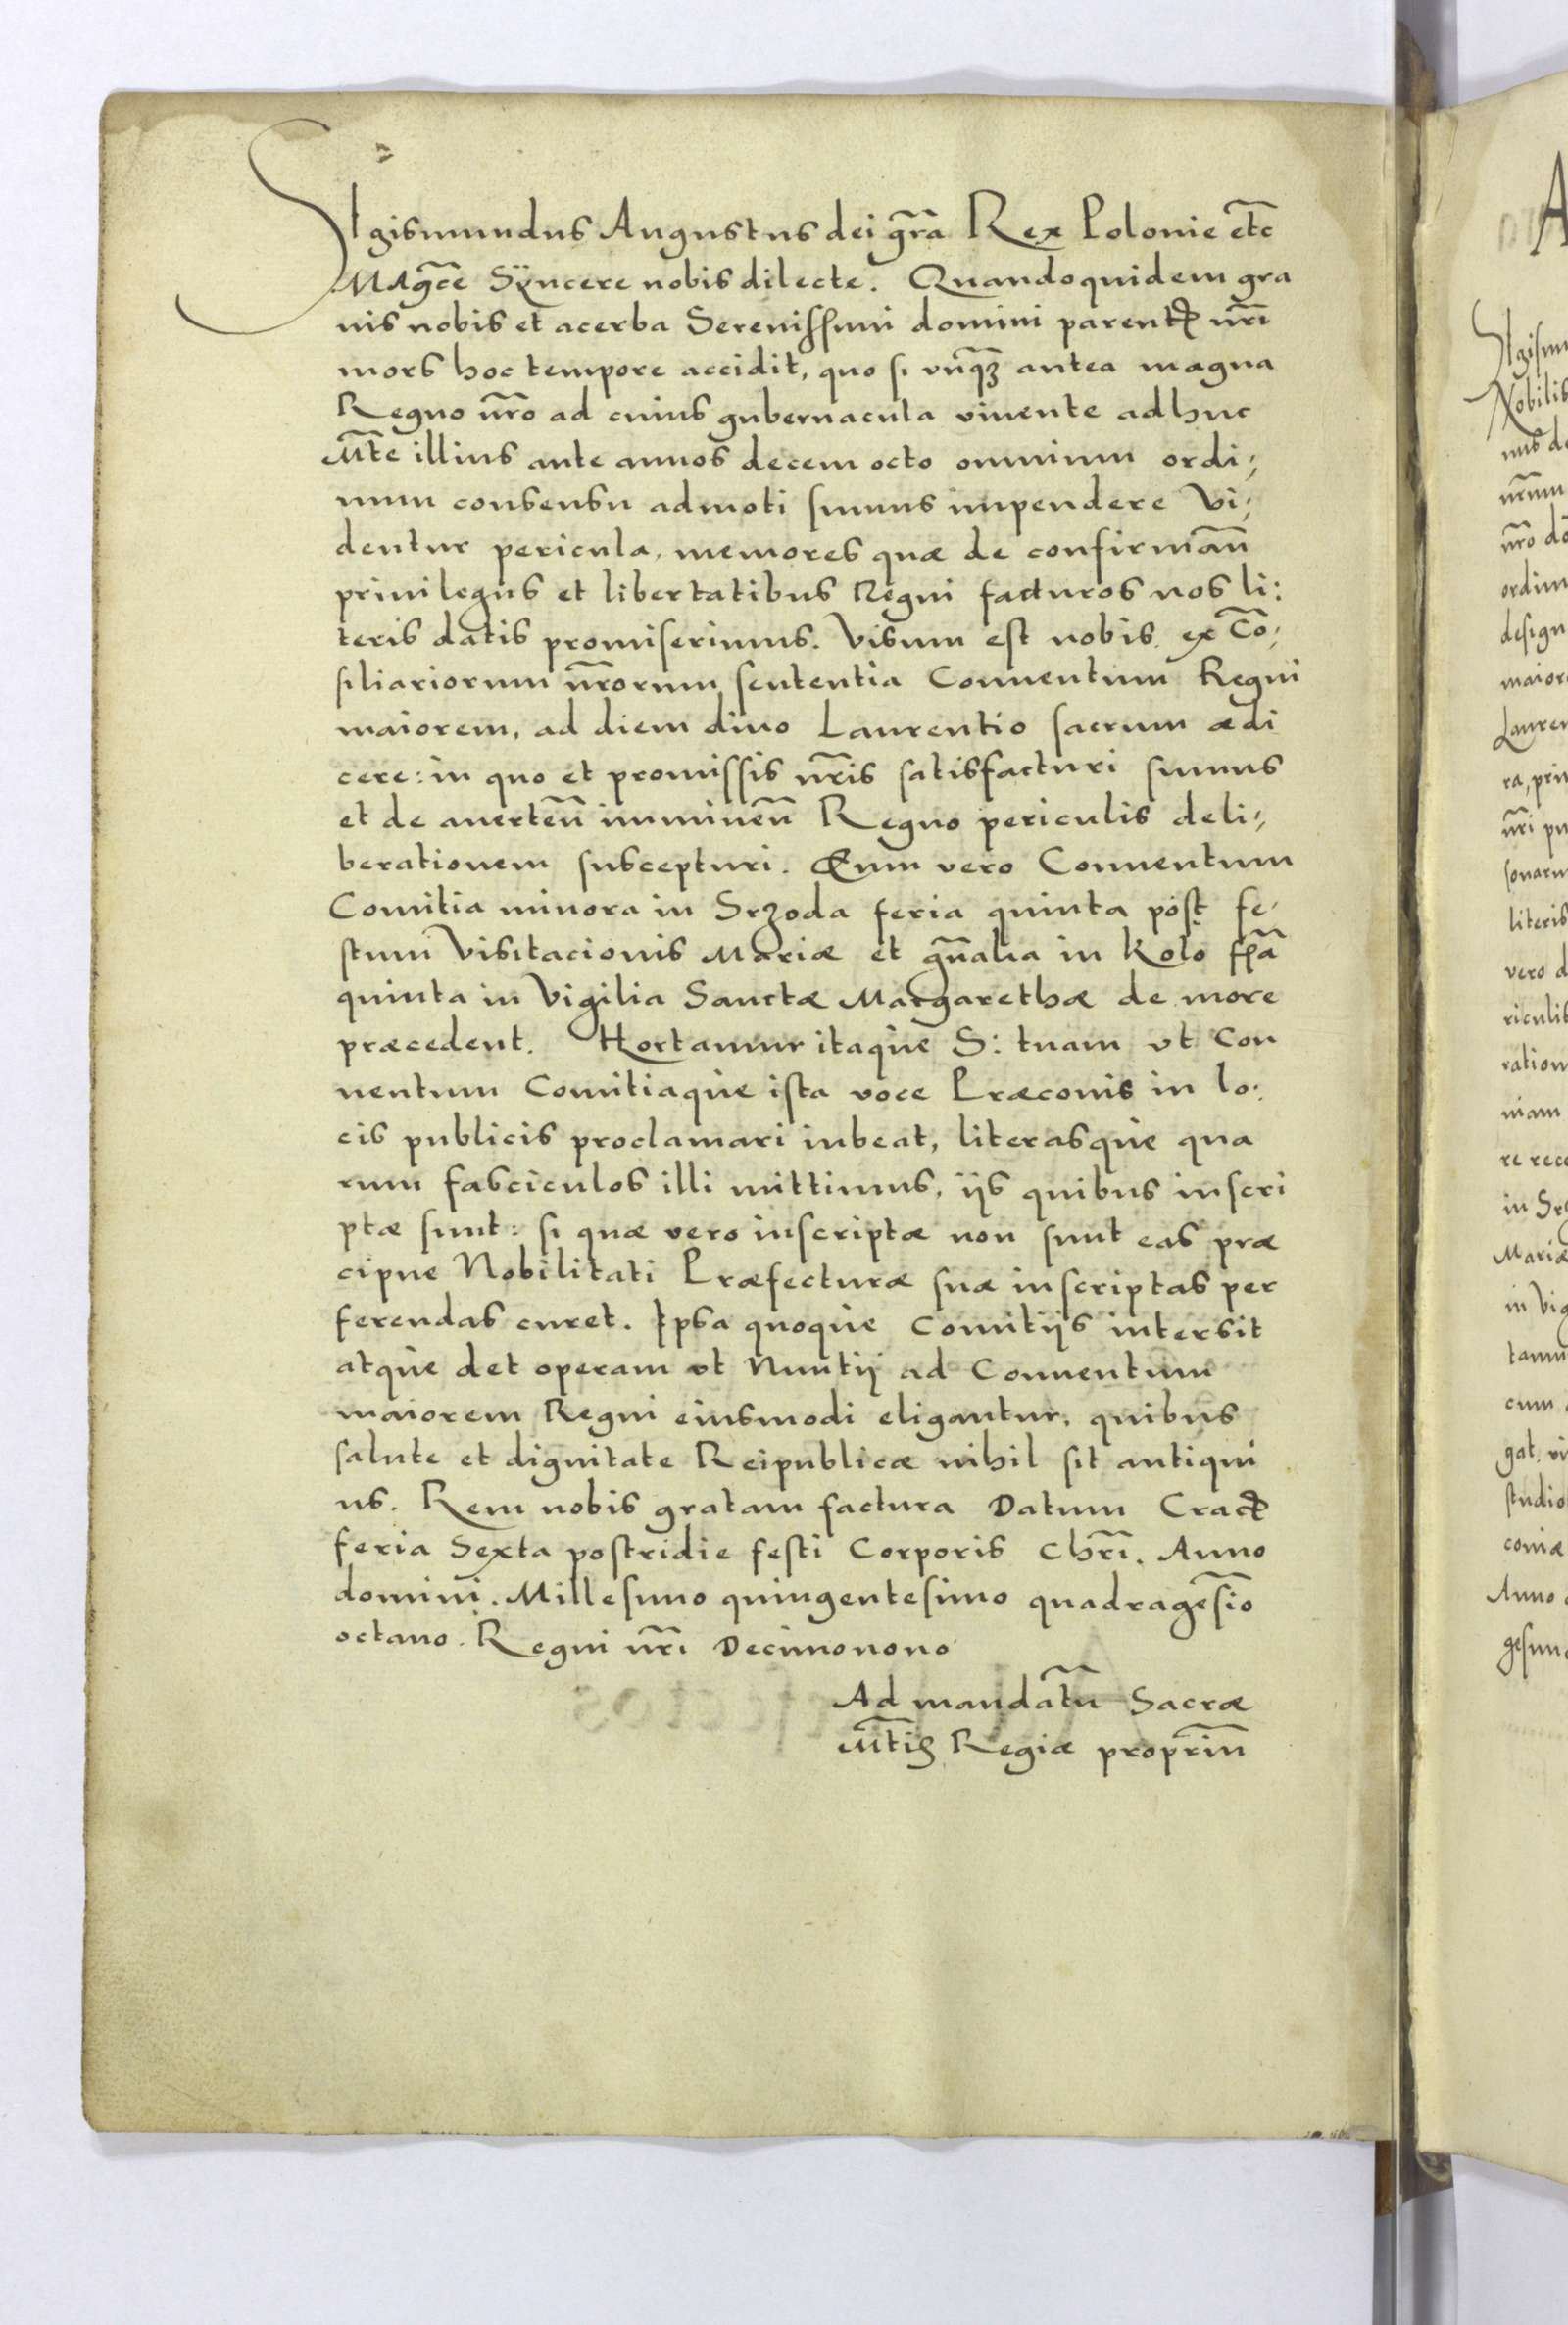 SIgismundus Augustus dei gr̃a Rex Polonie et̃c
MAg̃ce Sÿncere nobis dilecte. Quandoquidem gra
uis nobis et acerba Serenissimi domini parentꝭ nr̃i
mors hoc tempore accidit, quo si vnq̃ꝫ antea magna
Regno nr̃o ad cuius gubernacula viuente adhuc
M̃te illius ante annos decem octo omnium ordi;
num consensu admoti sumus impendere Vi;
dentur pericula, memores quæ de confirmañ
priuilegijs et libertatibus Regni facturos nos li:
teris datis promiserimus. Visum est nobis ex Cõ;
siliariorum nr̃orum sententia Conuentum Regni
maiorem, ad diem diuo Laurentio sacrum ædi
cere: in quo et promissis nr̃is satisfacturi sumus
et de auerteñ immineñ Regno periculis deli;
berationem suscepturi. Eum vero Conuentum
Comitia minora in Srzoda feria quinta post fe,
stum Visitacionis Mariæ et gñalia in Kolo fr̃ia
quinta in Vigilia Sanctæ Margarethæ de more
præcedent. Hortamur itaque S: tuam vt Con
uentum Comitiaque ista voce Præconis in lo:
cis publicis proclamari iubeat, literasque qua
rum fasciculos illi mittimus, ijs quibus inscri
ptæ sunt: si quæ vero inscriptæ non sunt eas præ
cipue Nobilitati Præfecturæ suæ inscriptas per
ferendas curet. Ipsa quoque Comitijs intersit
atque det operam vt Nuntij ad Conuentum
maiorem Regni eiusmodi eligantur, quibus
salute et dignitate Reipublicæ nihil sit antiqui
us. Rem nobis gratam factura Datum Cracꝭ
feria Sexta postridie festi Corporis Chr̃i. Anno
domini. Millesimo quingentesimo quadrages̃io
octauo. Regni nr̃i Decimonono
Ad mandat̃u Sacræ
M̃tis Regiæ propr̃iu